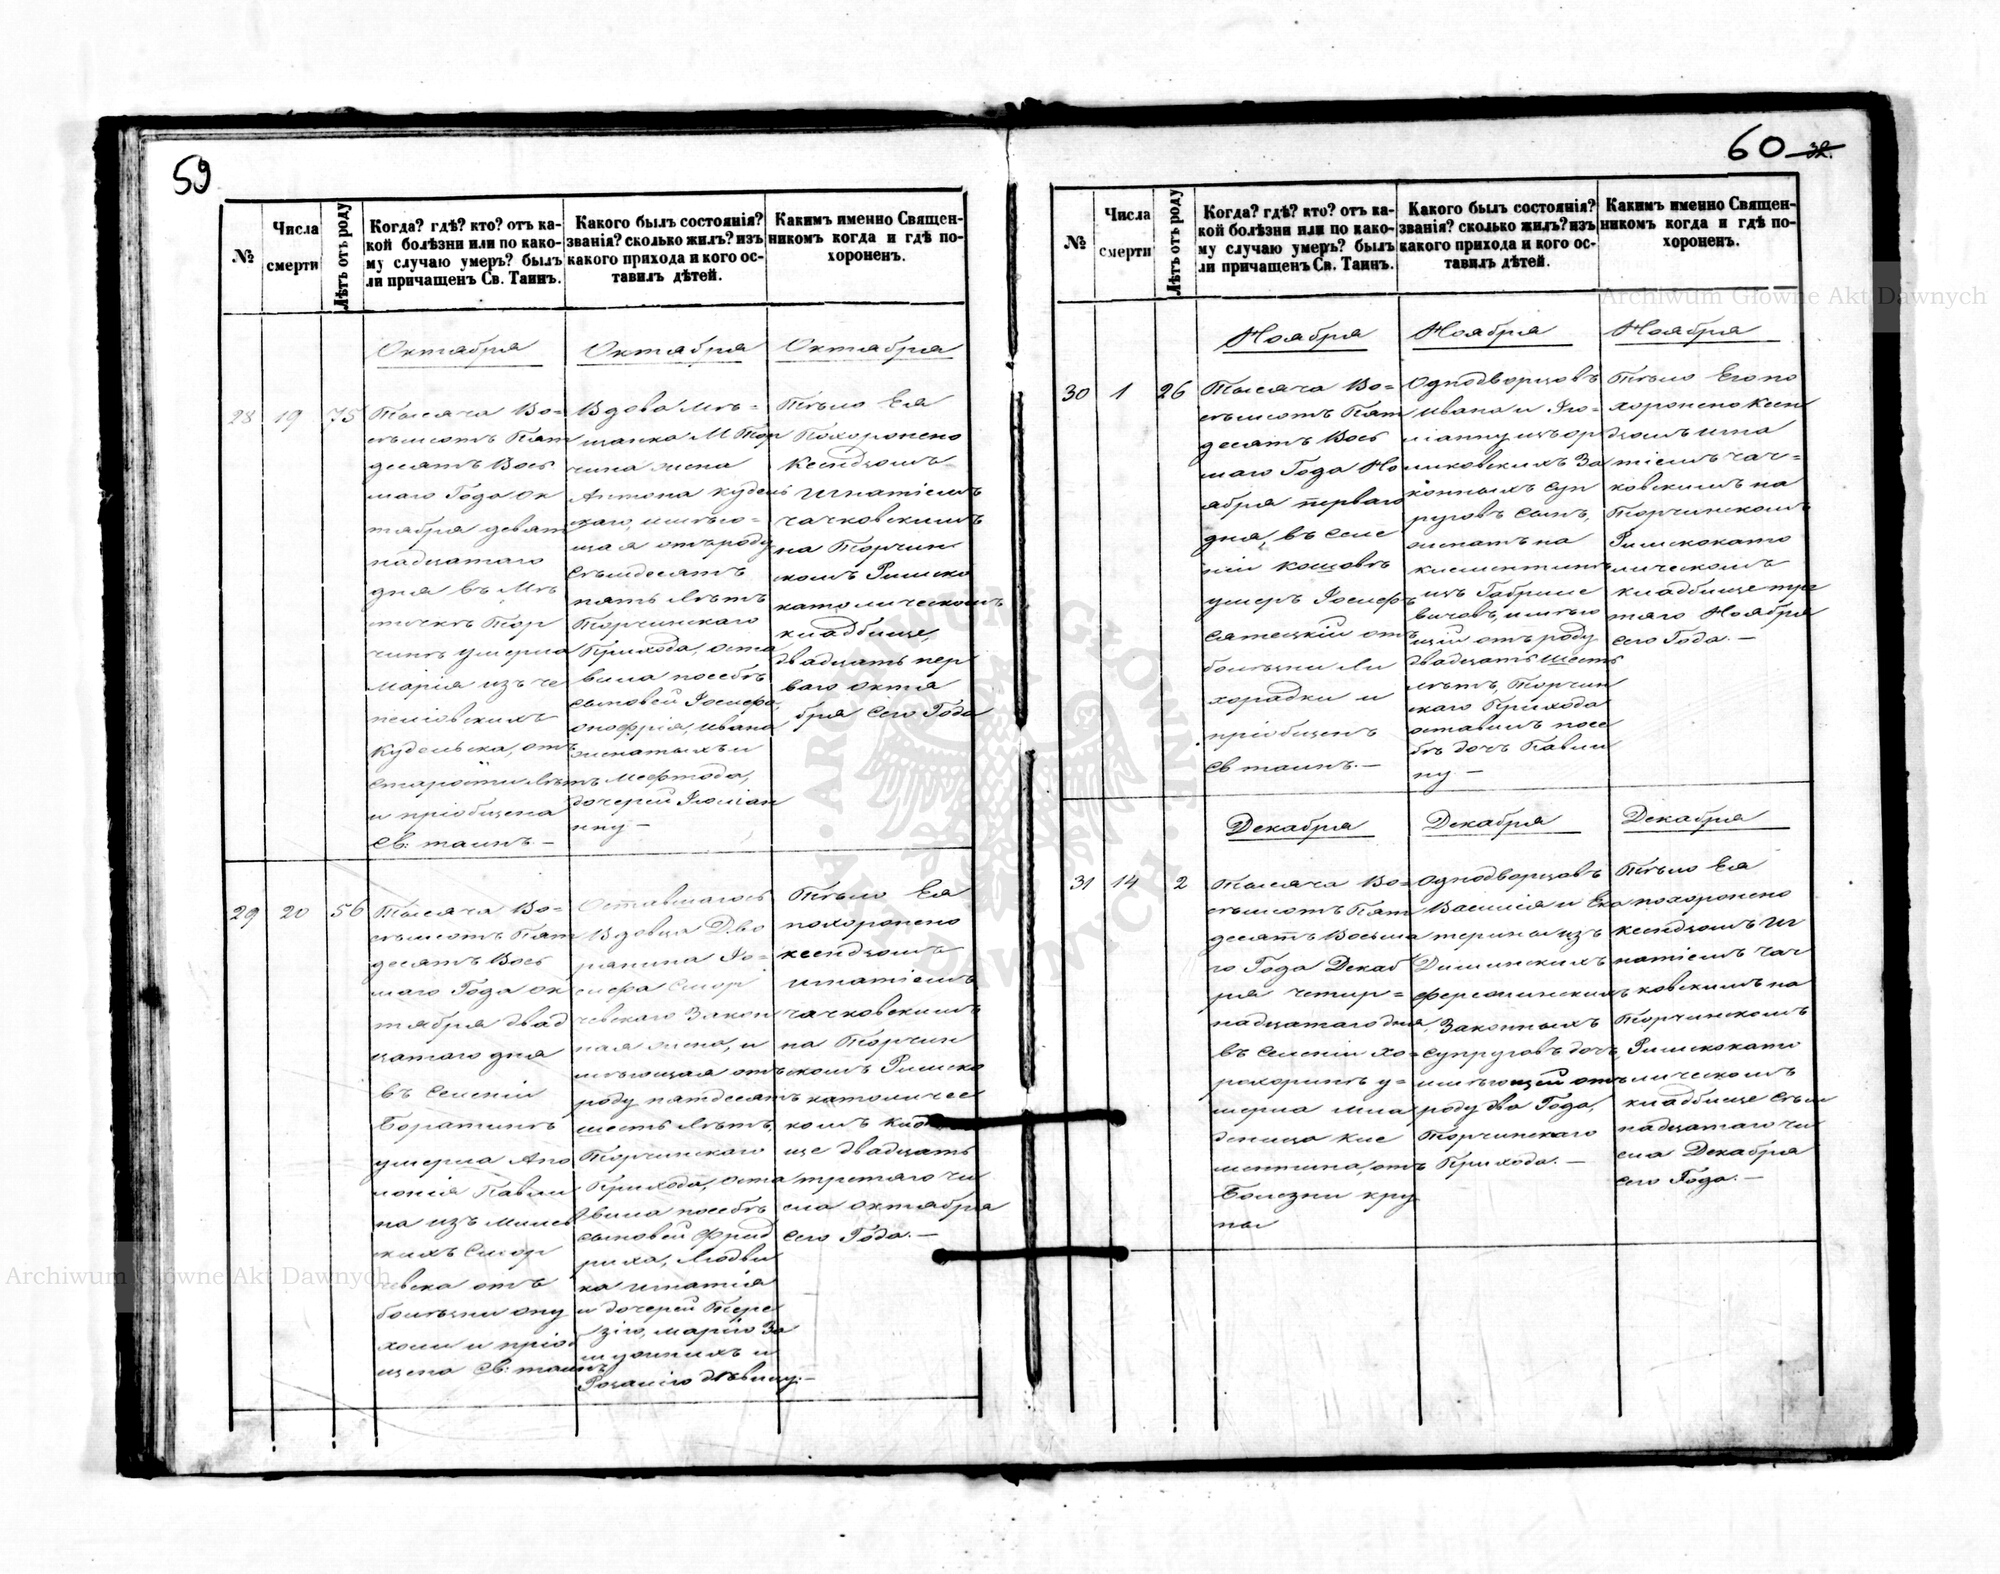 59
№
Числа
смерти
Лѣтъ отъ роду
Когда? гдѣ? кто? отъ ка-
кой болѣзни или по како-
му случаю умеръ? былъ
ли причащенъ Св. Таинъ.
Какого былъ состоянія?
званія? сколько жилъ? изъ
какого прихода и кого ос-
тавилъ дѣтей.
Какимъ именно Священ-
никомъ когда и гдѣ по-
хороненъ.
Октабря
Октабря
Октабря
28
19
75
Тысяча Во=
сѣмсотъ Пят
десятъ Вось
маго Года Ок
тября девят
надцатаго
дня въ Мѣ
стечкѣ Тор
чинѣ умерла
Марія изъ Че
Кудельска, отъ
старости лѣтъ
и пріобщена
Св: таинъ. —
Вдова Мѣ=
щанка М Тор
чина жена
Антона Кудель
скаго, имѣю=
щая отъ роду
Семдесятъ
пять лѣтъ
Торчинскаго
Прихода, оста
вила посебѣ
сыновей Іосифа,
Онофрія, Ивана
женатыхъ и
дочерей Юліан
ну —
Тѣло Ея
Похоронено
Ксендзомъ
Игнатіемъ
Чачковскимъ
на Торчин
скомъ Римско
католическомъ
кладбище,
двадцать пер
ваго Октя
бря сего Года
29
20
56
Тысяча Во=
сѣмсотъ Пят
десятъ Вось
маго Года Ок
тября двад
цатаго дня
въ Селеніи
Боратинѣ
умерла Апо
лонія Павли
на изъ
отъ
болѣзни опу
холи и пріоб
щена Св: таинъ
Оставшагося
Вдовца Дво
рянина Іо=
сифа Смор
чевскаго Закон
ная жена, и
мѣющая отъ
роду пятдесятъ
шесть лѣтъ,
Торчинскаго
Прихода, оста
вила посебѣ
сыновей Фрид
риха, Людви
ка Игнатія
и дочерей Тере
зію, Марію За
мужнихъ и
Розалію дѣвицу. —
Тѣло Ея
похоронено
ксендзомъ
Игнатіемъ
Чачковскимъ
на Торчин
скомъ Римско
католичес
комъ кладб
ще двадцать
третяго чи
сла Октября
сего Года. —
60 32.
№
Числа
смерти
Лѣтъ отъ роду
Когда? гдѣ? кто? отъ ка-
кой болѣзни или по како-
му случаю умеръ? былъ
ли причащенъ Св. Таинъ.
Какого былъ состоянія?
званія? сколько жилъ? изъ
какого прихода и кого ос-
тавилъ дѣтей.
Какимъ именно Священ-
никомъ когда и гдѣ по-
хороненъ.
Ноября
Ноября
Ноября
30
1
26
Тысяча Во=
сѣмсотъ Пят
десятъ Вось
маго Года Но
ября перваго
дня, въ Селе
ніи Кошовѣ
умеръ Іосифъ
отъ
болѣзни Ли
хорадки и
пріобщенъ
Св таинъ. —
Однодворцовъ
Ивана и Іо=
конныхъ Суп
руговъ сынъ,
женатъ на
Клементинѣ
изъ Габриле
вичовъ, имѣю
щій отъ роду
двадцать шесть
лѣтъ, Торчин
скаго Прихода
оставилъ посе
бѣ дочь Павли
ну —
Тѣло Его по
хоронено Ксен
дзомъ Игна
тіемъ Чач=
ковскимъ на
Торчинскомъ
Римскокато
лическомъ
кладбище тре
тяго Ноября
сего Года. —
Декабря
Декабря
Декабря
31
14
2
Тысяча Во=
сѣмсотъ Пят
десятъ Восьма
го Года Декаб
ря четыр=
надцатаго дня,
въ Селеніи Хо=
рохоринѣ у=
мерла мла
деница Кле
ментина, отъ
Болезни кру
пы
Однодворцовъ
Василія и Ека
терины изъ
Законныхъ
Супруговъ дочь,
имѣющей отъ
роду два Года,
Торчинскаго
Прихода. —
Тѣло Ея
похоронено
ксендзомъ Иг
натіемъ Чач
ковскимъ на
Торчинскомъ
Римскокато
лическомъ
кладбище Семи
надцатаго чи
сла Декабря
сего Года. —
Archiwum Główne Akt Dawnych
Archiwum Główne Akt Dawnych
ARCHIWUM GŁÓWNE AKT DAWNYCH